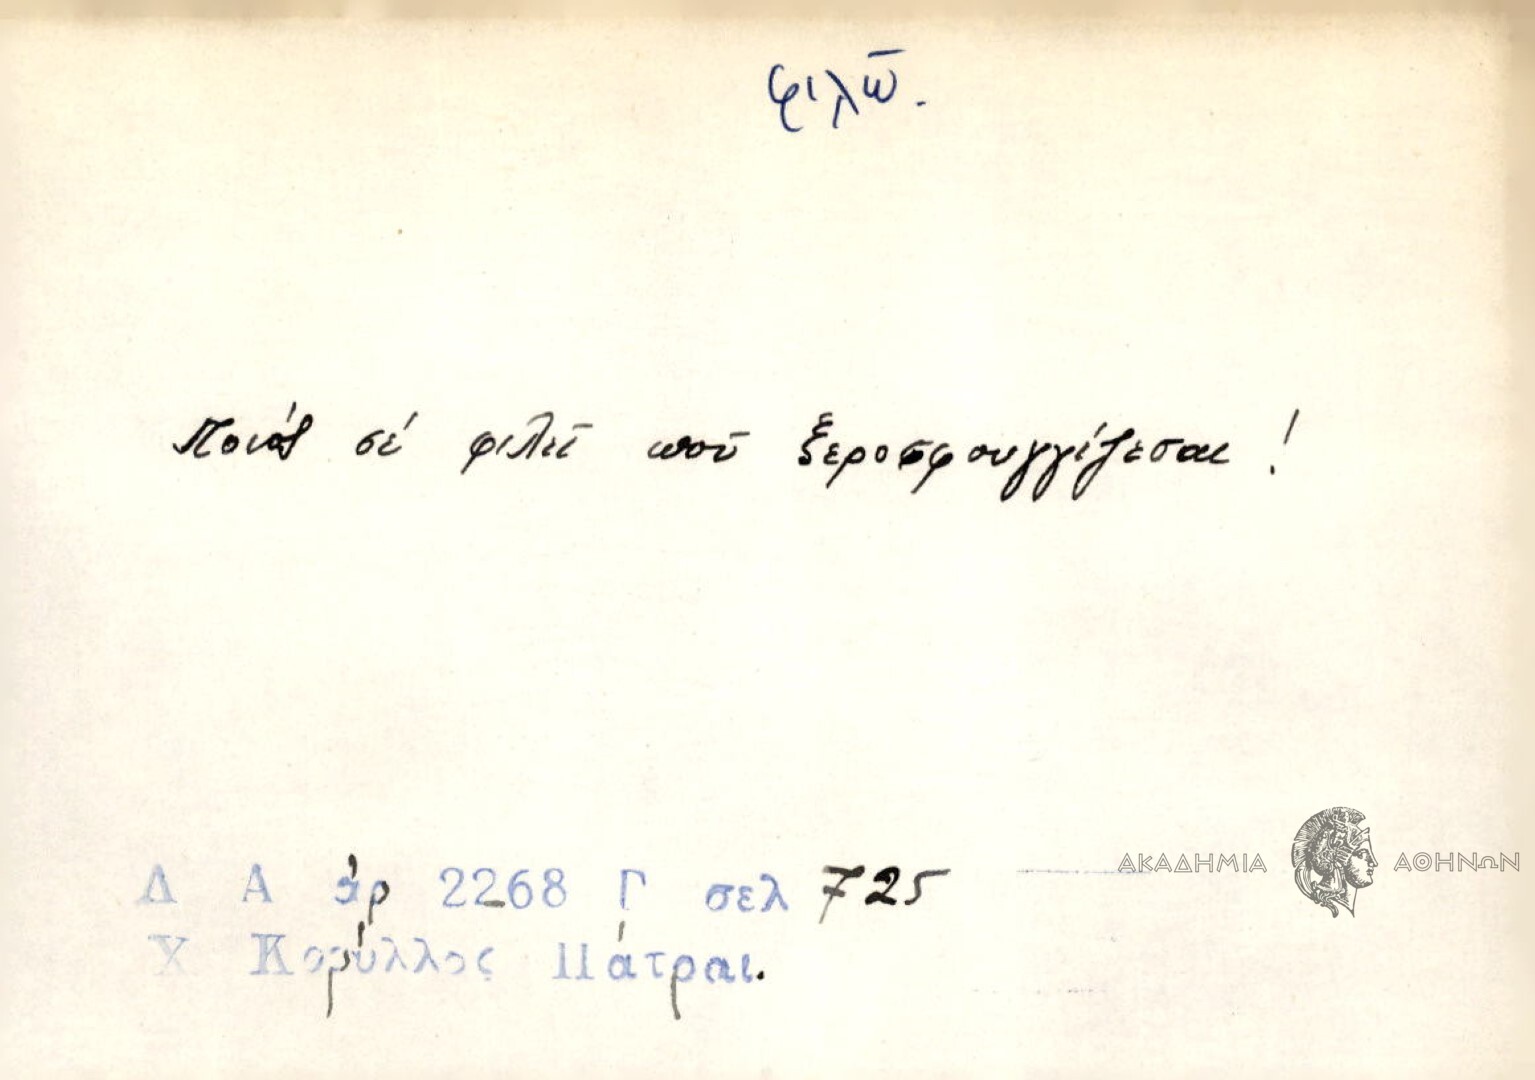 φιλῶ.
Ποιός σέ φιλεῖ ποῦ ξεροσφουγγίζεσαι!
Δ Α ἀρ 2268 Γ σελ 725
Χ Κορύλλος Πάτραι.
ΑΚΑΔΗΜΙΑ ΑΘΗΝΩΝ